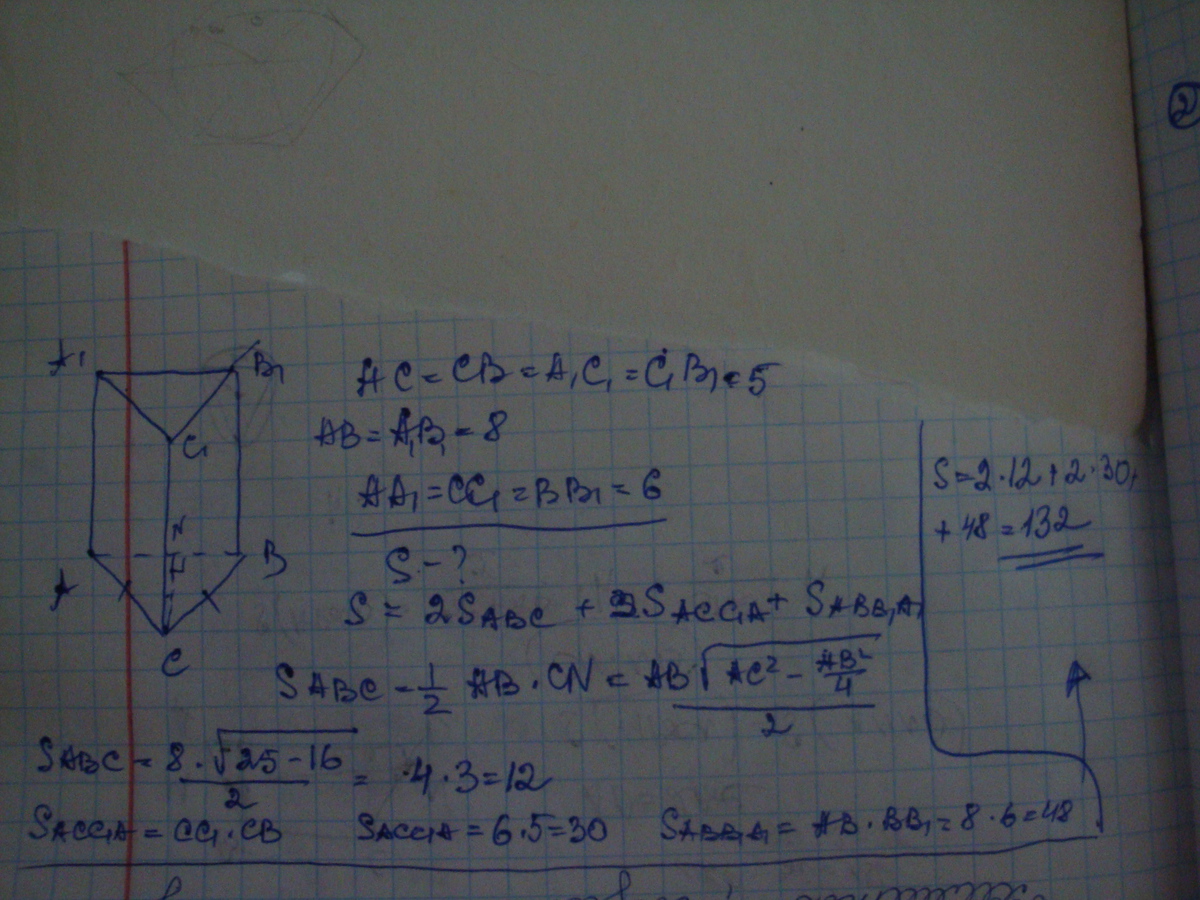 2
A1 B1
C1
N
A B
C
AC = CB = A1C1 = C1B1 = 5
AB = A1B1 = 8
AA1 = CC1 = BB1 = 6
S - ?
S = 2SABC + 2SACC1A + SABB1A1
SABC = 1/2 AB · CN = AB√(AC² - AB²/4) / 2
SABC = 8 · √(25-16) / 2 = ·4·3 = 12
SACC1A = CC1 · CB SACC1A = 6·5 = 30 SABB1A1 = AB · BB1 = 8·6 = 48
S = 2·12 + 2·30 +
+ 48 = 132